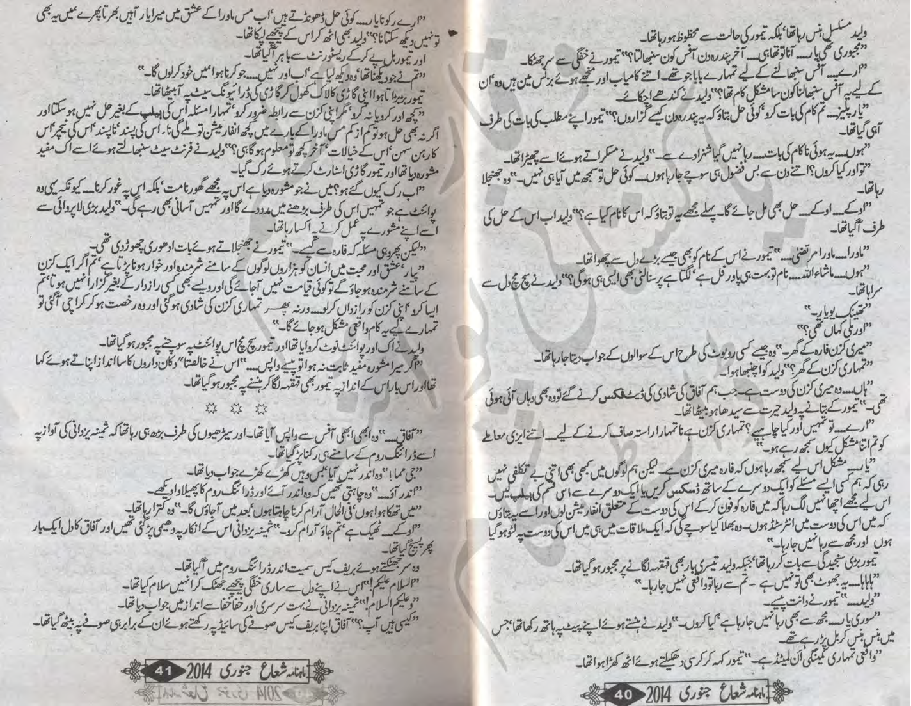 ولید مسلسل ہنس رہا تھا' بلکہ تیمور کی حالت سے محظوظ ہو رہا تھا۔
"مجبوری تھی یار۔ آنا تو تھا ہی۔ آخر پندرہ دن آفس کون سنبھالتا؟" تیمور نے خفگی سے سر جھٹکا۔
"ارے۔ آفس سنبھالنے کے لیے تمہارے بابا جو تھے۔ اتنے کامیاب اور منجھے ہوئے بزنس مین ہیں وہ' ان
کے لیے یہ آفس سنبھالنا کون سا مشکل کام تھا؟" ولید نے کندھے اچکائے۔
"یار پلیز۔ تم کام کی بات کرو' کوئی حل بتاؤ کہ یہ پندرہ دن کیسے گزاروں؟" تیمور اپنے مطلب کی بات کی طرف
آہی گیا تھا۔
"ہوں۔ یہ ہوئی نا کام کی بات۔ رہا نہیں گیا شہزادے سے۔" ولید نے مسکراتے ہوئے اسے چھیڑا تھا۔
"تو اور کیا کروں؟ اتنے دن سے بس فضول ہی سوچے جا رہا ہوں۔ کوئی حل تو سمجھ میں آیا ہی نہیں۔" وہ جھنجلا
رہا تھا۔
"اوکے۔ اوکے۔ حل بھی مل جائے گا۔ پہلے مجھے یہ تو بتاؤ کہ اس کا نام کیا ہے؟" ولید اب اس کے حل کی
طرف آ گیا تھا۔
"ماورا۔ ماورا مرتضیٰ۔" تیمور نے اس کے نام کو بھی جیسے بڑے دل سے پکارا تھا۔
"ہوں۔ ماشاء اللہ۔ نام تو بہت ہی پاور فل ہے' لگتا ہے پرسنالٹی بھی ایسی ہی ہو گی؟" ولید نے سچ مچ دل سے
سراہا تھا۔
"تھینک یو یار۔"
"اور ملی کہاں تھی؟"
"میری کزن فارہ کے گھر۔" وہ جیسے کسی روبوٹ کی طرح اس کے سوالوں کے جواب دیتا جا رہا تھا۔
"تمہاری کزن کے گھر؟" ولید کو اچنبھا ہوا۔
"ہاں۔ وہ میری کزن کی دوست ہے۔ جب ہم آفاق کی شادی کی ڈیٹ فکس کرنے گئے تو وہ بھی وہاں آئی ہوئی
تھی۔" تیمور کے بتانے پہ ولید حیرت سے سیدھا ہو بیٹھا تھا۔
"ارے۔ تو تمہیں اور کیا چاہیے؟ تمہاری کزن ہے نا تمہارا راستہ صاف کرنے کے لیے۔ اتنے ایزی معاملے
کو تم اتنا مشکل کیوں سمجھ رہے ہو۔"
"یار۔ مشکل اس لیے سمجھ رہا ہوں کہ فارہ میری کزن ہے۔ لیکن ہم لوگوں میں کبھی بھی اتنی بے تکلفی نہیں
رہی کہ ہم کسی ایسے مسئلے کو ایک دوسرے کے ساتھ ڈسکس کریں یا ایک دوسرے سے اس قسم کی ہیلپ لیں۔
اس لیے مجھے اچھا نہیں لگ رہا کہ میں فارہ کو فون کر کے اس کی دوست کے متعلق انفارمیشن لوں اور اسے یہ بتاؤں
کہ میں اس کی دوست میں انٹرسٹڈ ہوں۔ وہ بھلا کیا سوچے گی کہ ایک ملاقات میں ہی میں اس کی دوست پہ لٹو ہو گیا
ہوں اور مجھ سے رہا نہیں جا رہا۔"
تیمور بڑی سنجیدگی سے بات کر رہا تھا' جبکہ ولید تیسری بار بھی قہقہہ لگانے پر مجبور ہو گیا تھا۔
"ہاہاہا۔ یہ جھوٹ بھی تو نہیں ہے۔ تم سے رہا تو واقعی نہیں جا رہا۔"
"ولید۔" تیمور نے دانت پیسے۔
"سوری یار۔ مجھ سے بھی رہا نہیں جا رہا ہے' کیا کروں۔" ولید نے ہنستے ہوئے اپنے پیٹ پہ ہاتھ رکھا تھا' جس
میں ہنس ہنس کر بل پڑ رہے تھے۔
"واقعی تمہاری کمینگی آن لمیٹڈ ہے۔" تیمور کہہ کر کرسی دھکیلتے ہوئے اٹھ کھڑا ہوا تھا۔
ماہنامہ شعاع جنوری 2014 40
"ارے رکو نا یار۔ کوئی حل ڈھونڈتے ہیں' اب مس ماورا کے عشق میں میرا یار آہیں بھرتا پھرے' میں یہ بھی
تو نہیں دیکھ سکتا نا؟" ولید بھی اٹھ کر اس کے پیچھے لپکا تھا۔
اور تیمور بل پے کر کے ریسٹورنٹ سے باہر آ گیا تھا۔
"تم نے جو دیکھنا تھا وہ دیکھ لیا ہے' اب اور نہیں۔ جو کرنا ہوا میں خود کر لوں گا۔"
تیمور بڑبڑاتا ہوا اپنی گاڑی کا لاک کھول کر گاڑی کی ڈرائیونگ سیٹ پہ آ بیٹھا تھا۔
"کچھ اور کرو یا نہ کرو' مگر اپنی کزن سے رابطہ ضرور کرو' تمہارا مسئلہ اس کی ہیلپ کے بغیر حل نہیں ہو سکتا اور
اگر نہ بھی حل ہو تو کم از کم مس ماورا کے بارے میں کچھ انفارمیشن تو ملے گی نا۔ اس کی پسند' ناپسند' اس کی نیچر' اس
کا رہن سہن' اس کے خیالات' آخر کچھ تو معلوم ہو گا ہی؟" ولید نے فرنٹ سیٹ سنبھالتے ہوئے اسے اک مفید
مشورہ دیا تھا اور تیمور گاڑی اسٹارٹ کرتے ہوئے رک گیا۔
"اب رک کیوں گئے ہو؟ میں نے جو مشورہ دیا ہے اس پہ مجھے گھورنا مت' بلکہ اس پہ غور کرنا۔ کیونکہ یہی وہ
پوائنٹ ہے جو تمہیں اس کی طرف بڑھنے میں مدد دے گا اور تمہیں آسانی بھی رہے گی۔" ولید بڑی لاپروائی سے
اسے اپنے مشورے پہ عمل کرنے پہ اکسا رہا تھا۔
"لیکن پھر وہی مسئلہ کہ فارہ سے کیسے۔" تیمور نے جھنجلاتے ہوئے بات ادھوری چھوڑ دی تھی۔
"یار' عشق اور محبت میں انسان کو ہزاروں لوگوں کے سامنے شرمندہ اور خوار ہونا پڑتا ہے' تم اگر ایک کزن
کے سامنے شرمندہ ہو جاؤ گے تو کوئی قیامت نہیں آ جائے گی اور ویسے بھی کسی رازدار کے بغیر گزارا نہیں ہوتا' تم
ایسا کرو' اپنی کزن کو رازداں کر لو۔ ورنہ پھر تمہاری کزن کی شادی ہو گئی اور وہ رخصت ہو کر کراچی آ گئی تو
تمہارے لیے یہ کام واقعی مشکل ہو جائے گا۔"
ولید نے اک اور پوائنٹ نوٹ کروایا تھا اور تیمور سچ مچ اس پوائنٹ پہ سوچنے پہ مجبور ہو گیا تھا۔
"اگر میرا مشورہ مفید ثابت نہ ہوا تو پیسے واپس۔" اس نے خالصتاً دکان داروں کا سا انداز اپناتے ہوئے کہا
تھا اور اس بار اس کے انداز پہ تیمور بھی قہقہہ لگا کر ہنسنے پہ مجبور ہو گیا تھا۔
☼ ☼ ☼
"آفاق۔" وہ ابھی ابھی آفس سے واپس آیا تھا۔ اور سیڑھیوں کی طرف بڑھ ہی رہا تھا کہ ثمینہ یزدانی کی آواز پہ
اسے ڈرائنگ روم کے سامنے ہی رکنا پڑ گیا تھا۔
"جی مما!" وہ اندر نہیں گیا تھا' بس وہیں کھڑے کھڑے جواب دیا تھا۔
"اندر آؤ۔" وہ چاہتی تھیں کہ وہ اندر آئے اور ڈرائنگ روم کا پھیلاوا دیکھے۔
"میں تھکا ہوا ہوں' فی الحال آرام کرنا چاہتا ہوں' بعد میں آ جاؤں گا۔" وہ کترا رہا تھا۔
"اوکے۔ ٹھیک ہے' تم جاؤ آرام کرو۔" ثمینہ یزدانی اس کے انکار پہ دھیمی پڑ گئی تھیں اور آفاق کا دل ایک بار
پھر پسیج گیا تھا۔
وہ سر جھٹکتے ہوئے بریف کیس سمیت اندر ڈرائنگ روم میں آ گیا تھا۔
"السلام علیکم!" اس نے اپنے دل سے ساری خفگی پیچھے جھٹک کر انہیں سلام کیا تھا۔
"وعلیکم السلام!" ثمینہ یزدانی نے بہت سرسری اور خفا خفا سے انداز میں جواب دیا تھا۔
"کیسی ہیں آپ؟" آفاق اپنا بریف کیس صوفے کی سائیڈ پہ رکھتے ہوئے ان کے برابر ہی صوفے پر بیٹھ گیا تھا۔
ماہنامہ شعاع جنوری 2014 41